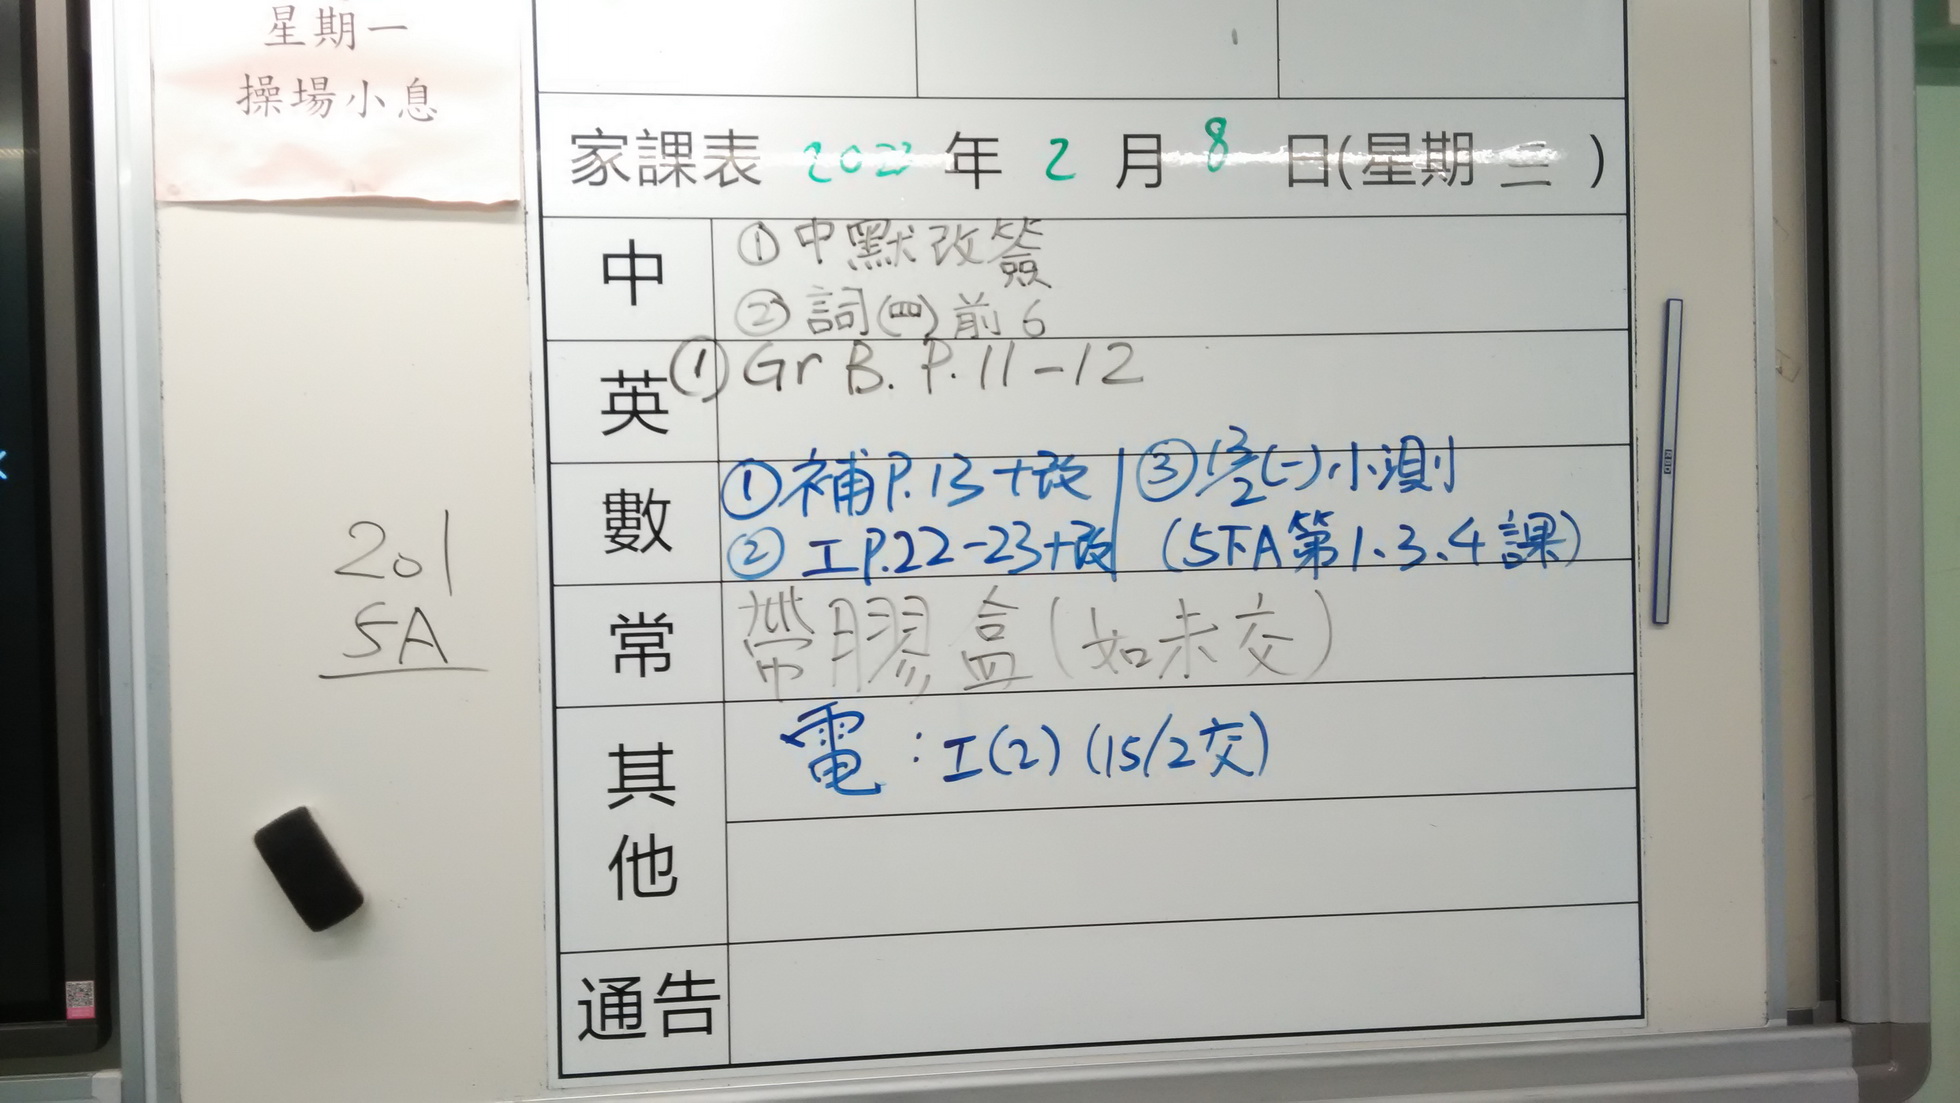 星期一
操場小息
家課表 2023 年 2 月 8 日(星期 三 )
中
① 中默改簽
② 詞(四)前 6
英
① Gr B. P.11-12
數
① 補P.13+改
② 工P.22-23+改
③ 13/2(一)小測
(5下A第1、3、4課)
常
帶膠盒(如未交)
其他
電:工(2) (15/2交)
通告
201
5A